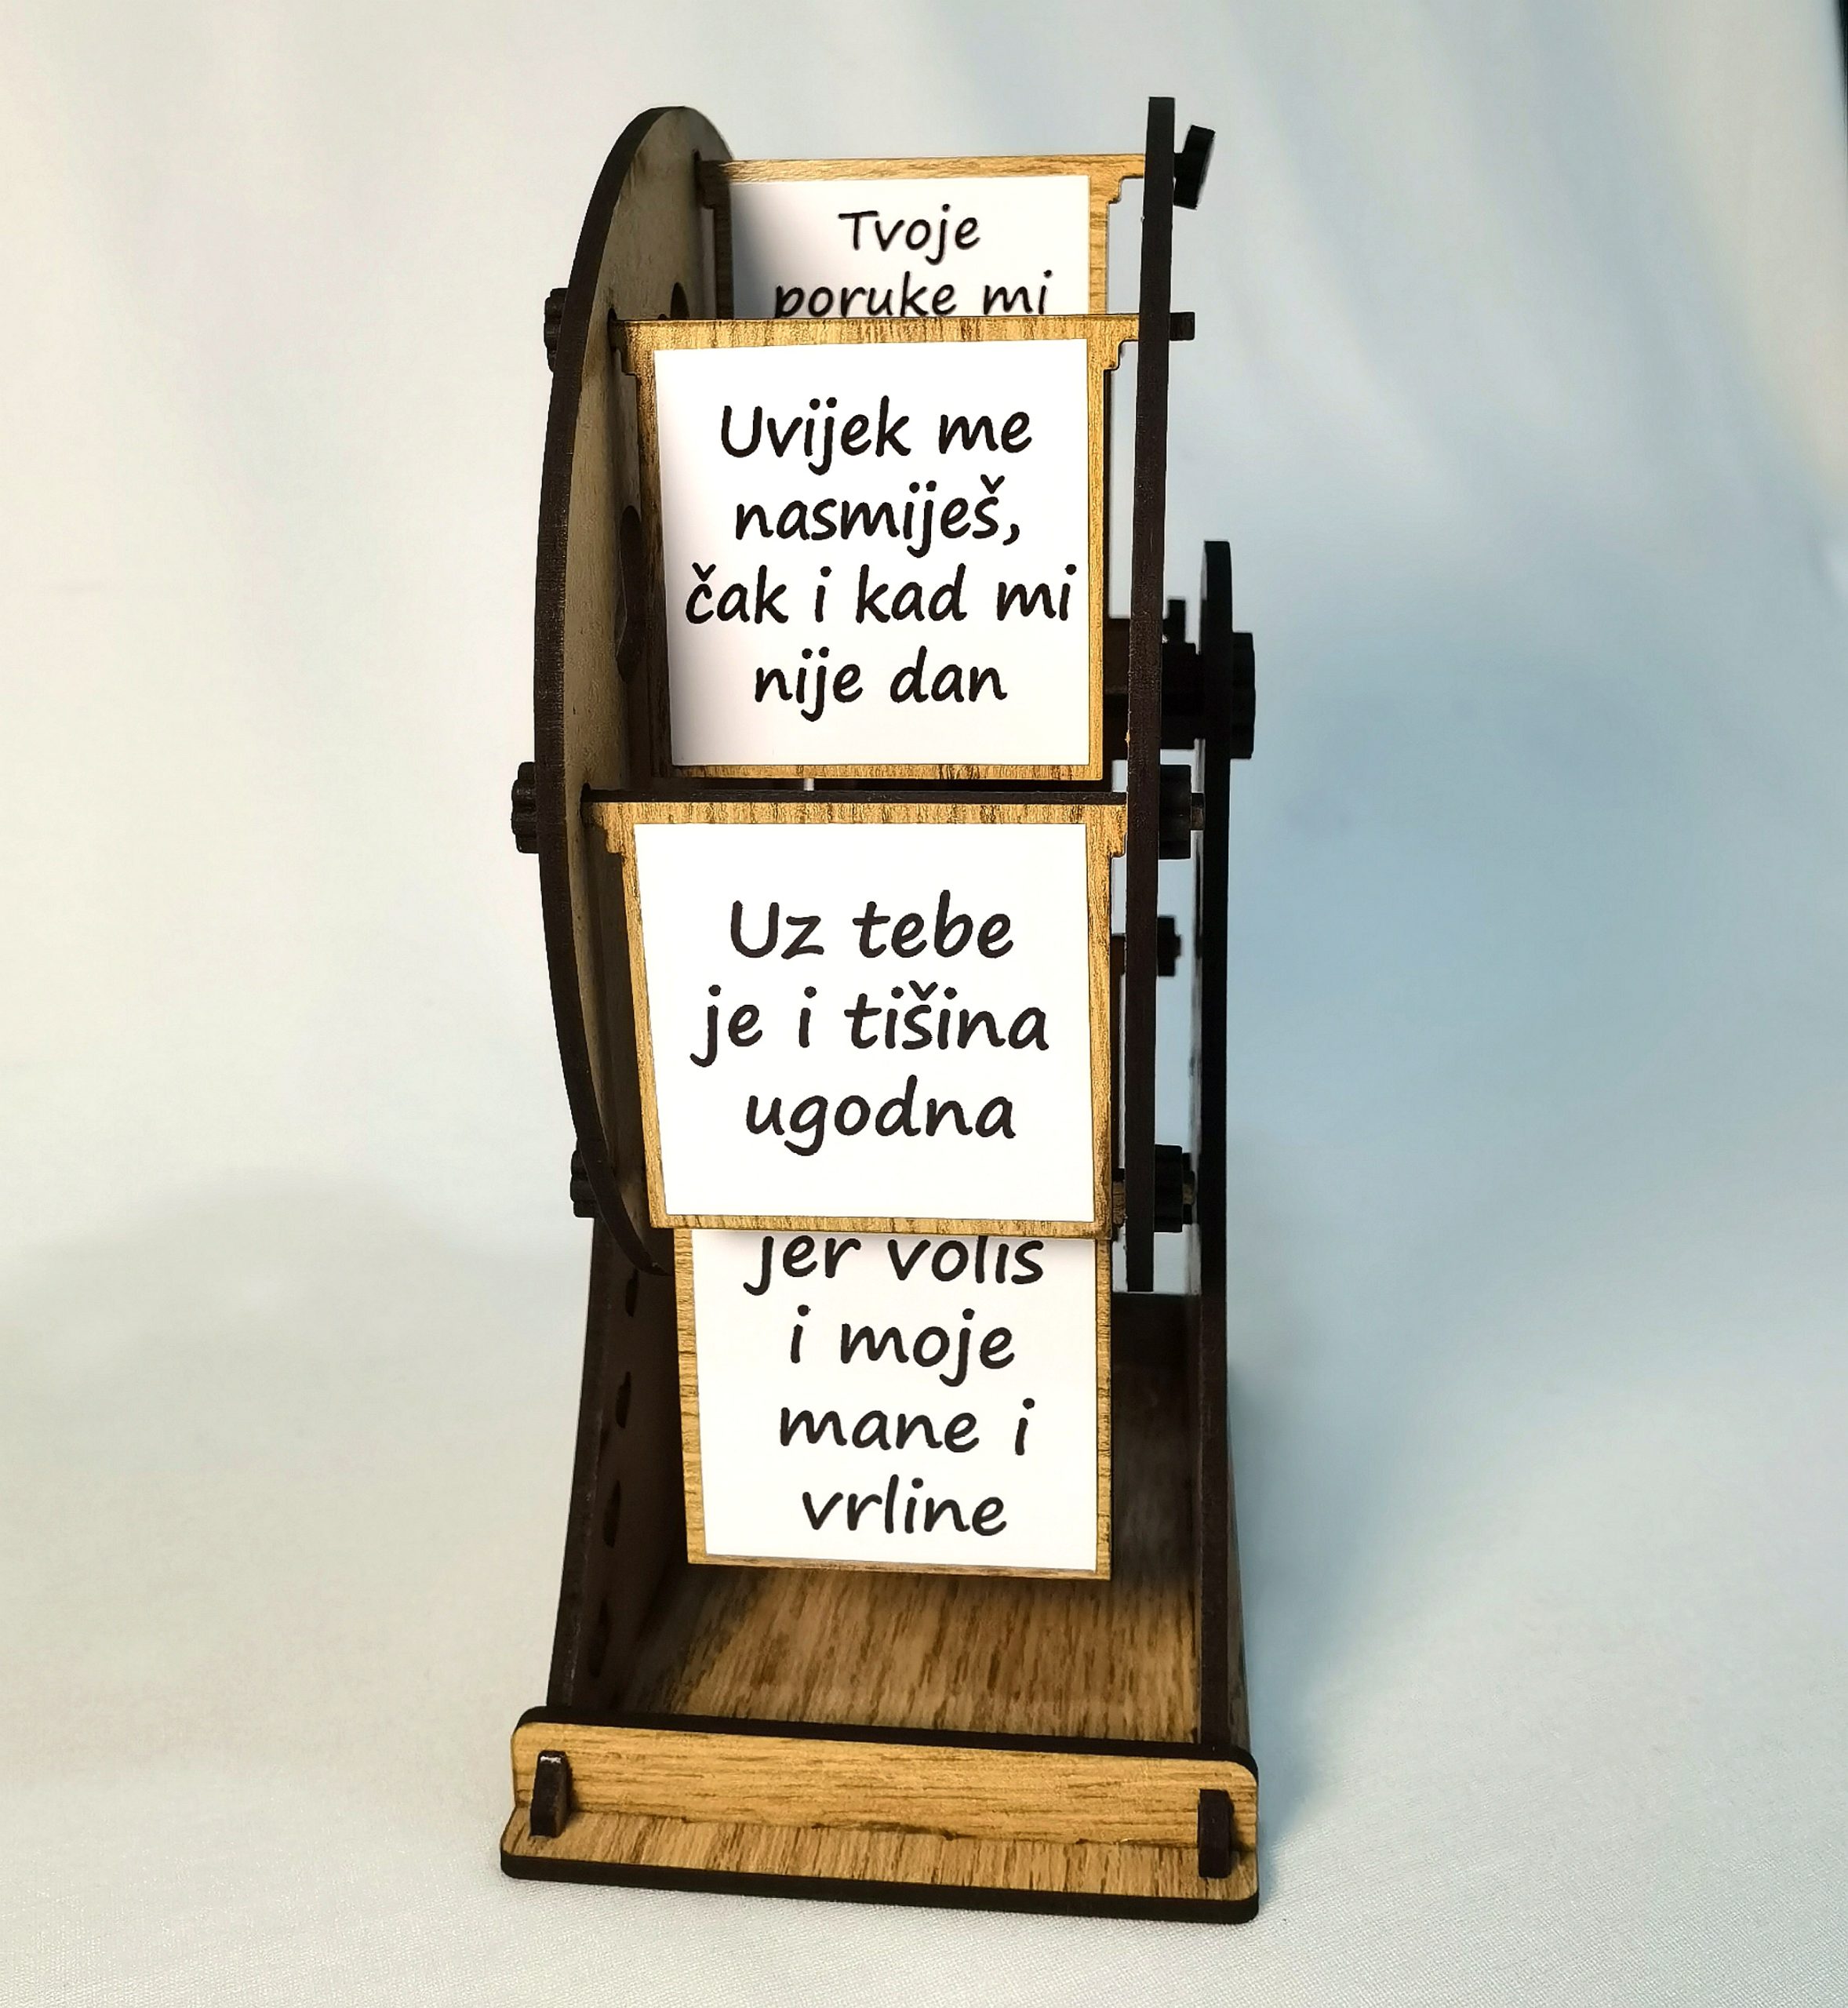 Tvoje
poruke mi
Uvijek me
nasmiješ,
čak i kad mi
nije dan
Uz tebe
je i tišina
ugodna
jer voliš
i moje
mane i
vrline